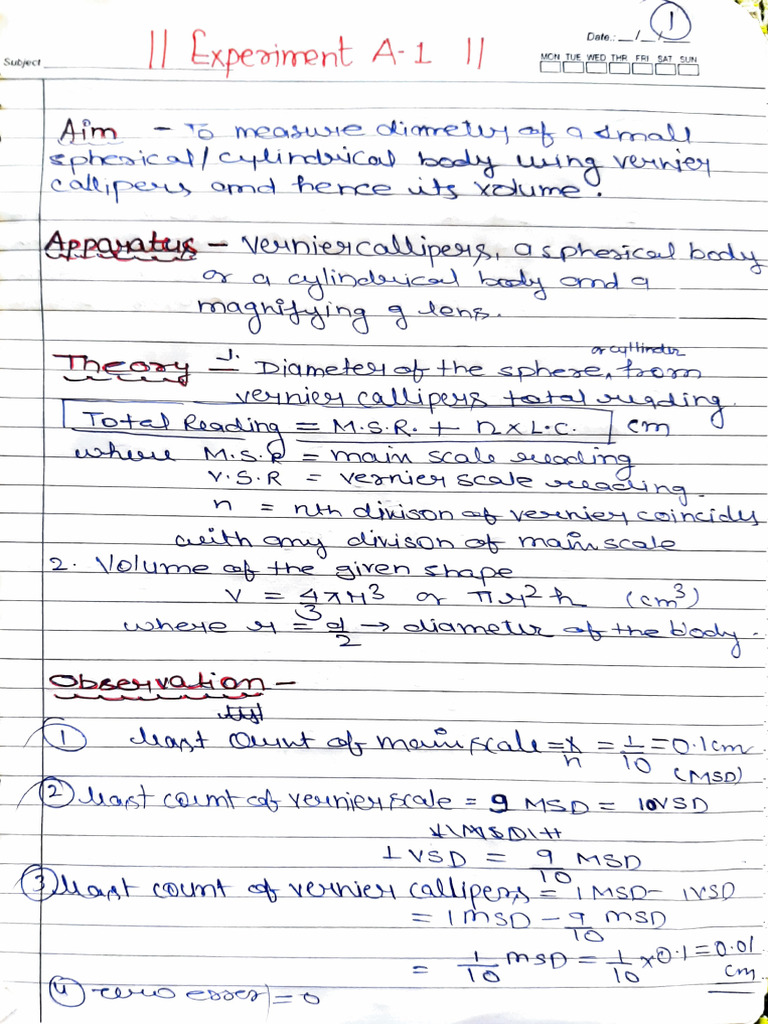 1
Date.: __/__/__
Subject
|| Experiment A-1 ||
MON TUE WED THR FRI SAT SUN
Aim - To measure diameter of a small
spherical/cylindrical body using vernier
callipers and hence its volume.
Apparatus - Vernier callipers, a spherical body
or a cylindrical body and a
magnifying g lens.
or cyllinder
Theory - 1. Diameter of the sphere, from
vernier callipers total reading.
Total Reading = M.S.R. + n x L.C. cm
where M.S.R = main scale reading
V.S.R = vernier scale reading.
n = nth divison of vernier coincides
with any divison of main scale
2. Volume of the given shape
V = 4/3 πr³ or πr²h (cm³)
where r = d/2 → diameter of the body.
Observation -
① least count of main scale = x/n = 1/10 = 0.1cm
(MSD)
② least count of vernier scale = 9 MSD = 10VSD
1 VSD = 9/10 MSD
③ least count of vernier callipers = 1 MSD - 1VSD
= 1 MSD - 9/10 MSD
= 1/10 MSD = 1/10 x 0.1 = 0.01
cm
④ zero error = 0